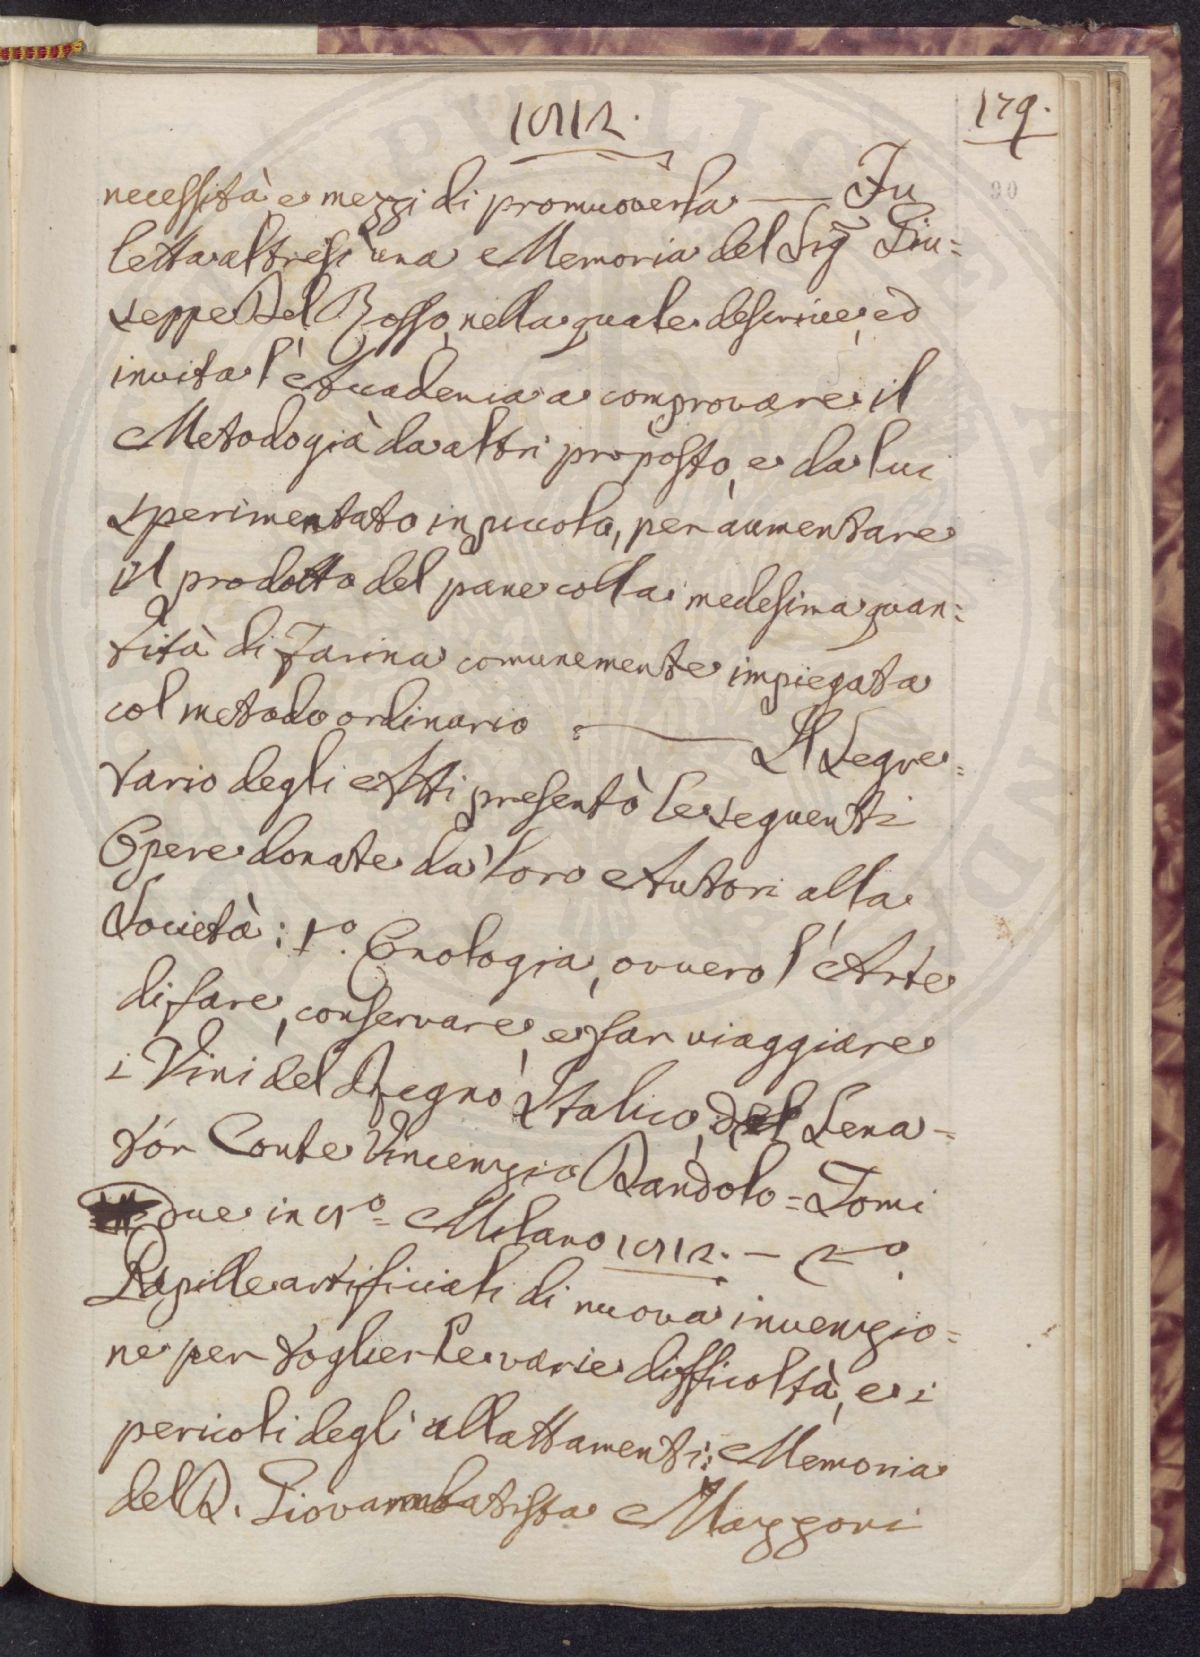 1812.
179.
90
necessità e mezzi di promuoverla —— Fu
letta altresì una Memoria del Sig.r Giu=
seppe Del Rosso, nella quale descrive, ed
invita l'Accademia a comprovare il
Metodo già da altri proposto, e da lui
sperimentato in piccolo, per aumentare
il prodotto del pane colla medesima quan=
tità di Farina comunemente impiegata
col metodo ordinario —— Il Segre=
tario degli Atti presentò le seguenti
Opere donate da' loro Autori alla
Società: 1.º Enologia, ovvero l'Arte
di fare, conservare, e far viaggiare
i Vini del Regno Italico, del Sena=
tor Conte Vincenzio Dandolo = Tomi
due in 8º = Milano 1812. — 2º.
Papille artificiali di nuova invenzio=
ne per toglier le varie difficoltà, e i
pericoli degli allattamenti: Memoria
del D. Giovambatista Mazzoni